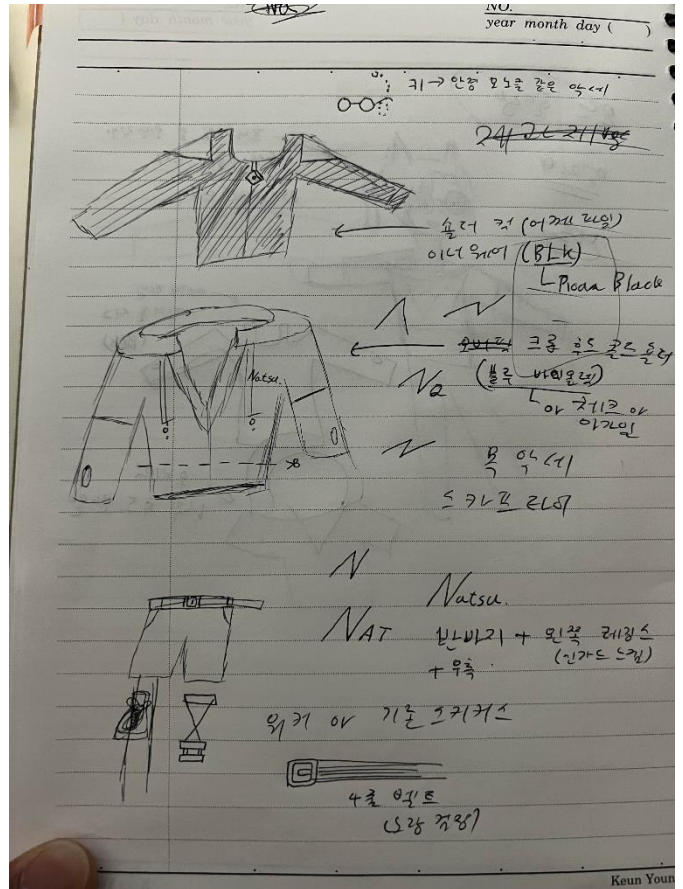 NO.
year month day ( )
키 → 안경 모노클 같은 악세
숄더 컷 (어깨 라인)
이너 웨어 (BLK)
Piona Black
Natsu.
크롭 후드 콜드 숄더
(블루 바이올렛)
or 체크 or
아가일
Na
N
목 악세
스카프 리머
N
Natsu.
NAT
반바지 + 왼쪽 레깅스
(신가드 느낌)
+ 우측
워커 or 기존 스니커스
4줄 벨트
(노랑 검정)
Keun Youn